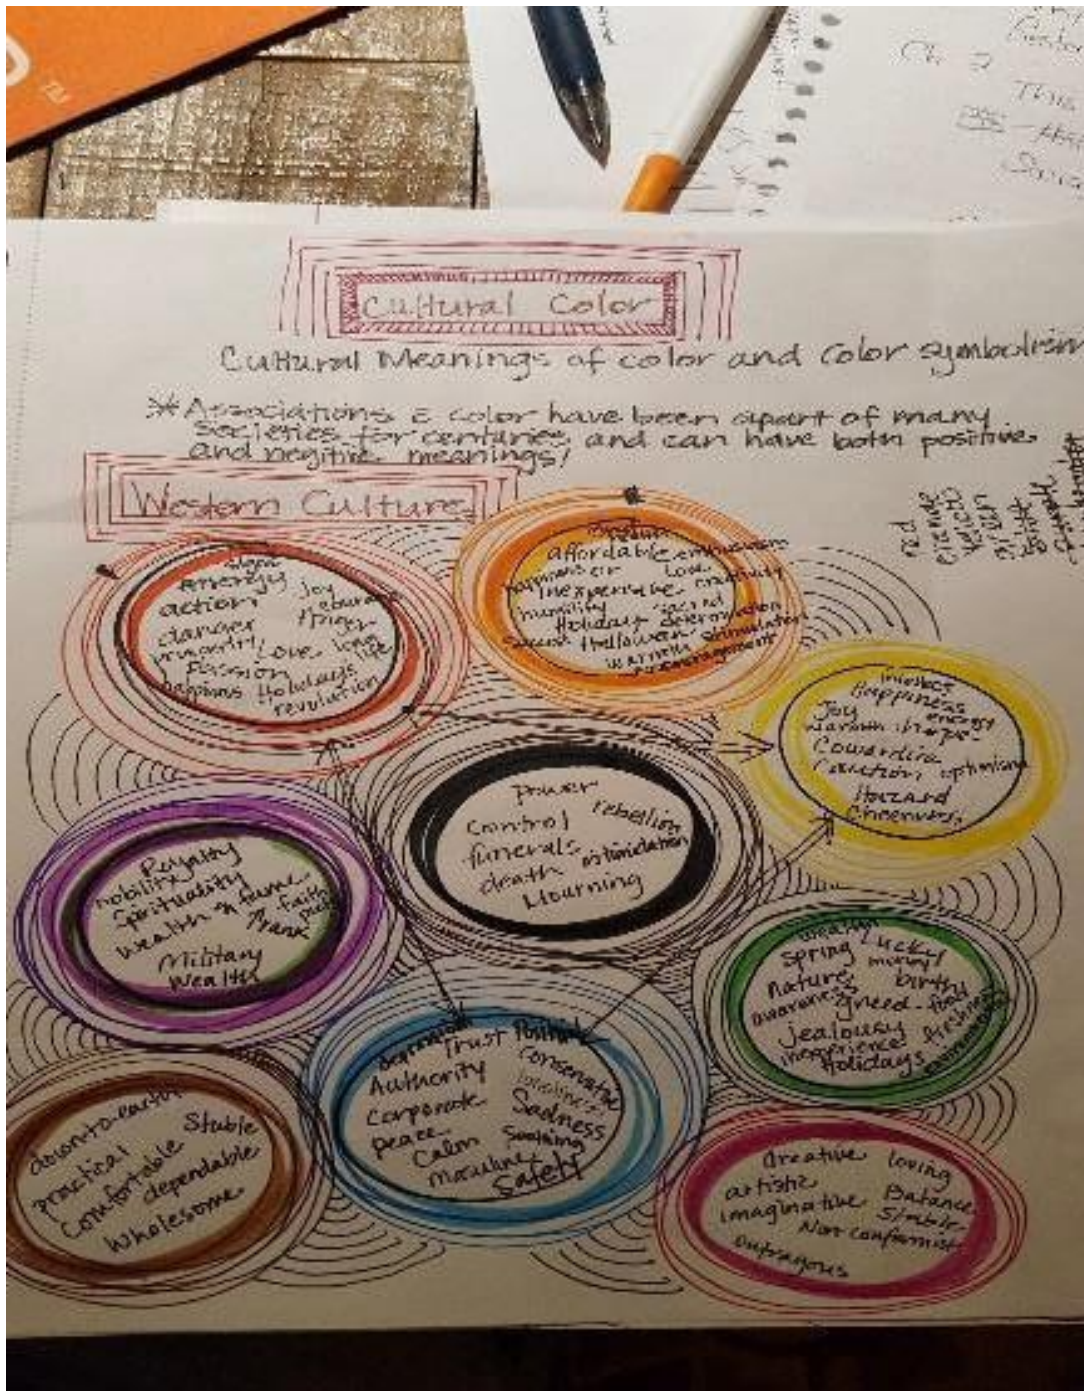 TM
Ch 2
This
Cultural Color
Cultural Meanings of color and color symbolism
*Associations & color have been apart of many
societies for centuries and can have both positive
and negitive meanings!
Western Culture
red
green
energy
action
Joy
danger
Anger
prosperity
Love
long life
Passion
happiness Holidays
revolution
affordable enthusiasm
happiness Love
inexpensive creativity
humility sacred
Holiday determination
success Halloween stimulation
warmth encouragement
intellect
Happiness
Joy energy
warmth hope
Cowardice
Caution optimism
Hazard
Cheeriness
power
control rebellion
funerals
death intimidation
Mourning
Royalty
nobility
Spirituality
Wealth & fame
faith
Military
Wealth
wealth
spring Lucky
money
nature birth
awareness greed - food
jealousy freshness
inexperience
Holidays environment
depression
Trust Positive
Authority Conservative
loneliness
Corporate Sadness
peace
Calm Soothing
Masculine Safety
down-to-earth
Stable
practical
Comfortable dependable
Wholesome
Creative loving
artistic
imaginative Balance
Stable
Non conformist
outragous